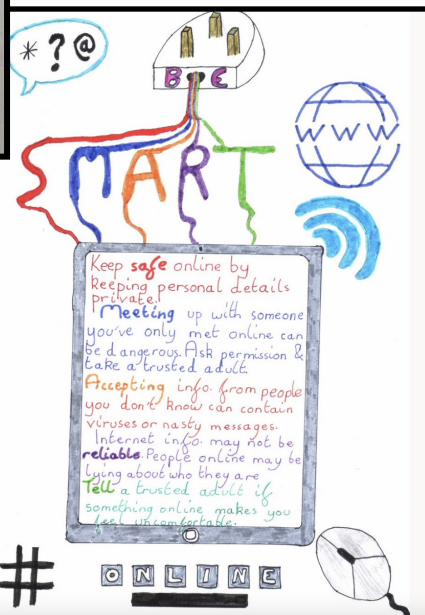 *?@
BE
SMART
WWW
Keep safe online by
keeping personal details
private!
Meeting up with someone
you've only met online can
be dangerous. Ask permission &
take a trusted adult.
Accepting info. from people
you don't know can contain
viruses or nasty messages.
Internet info. may not be
reliable. People online may be
lying about who they are
Tell a trusted adult if
something online makes you
feel uncomfortable.
#
ONLINE